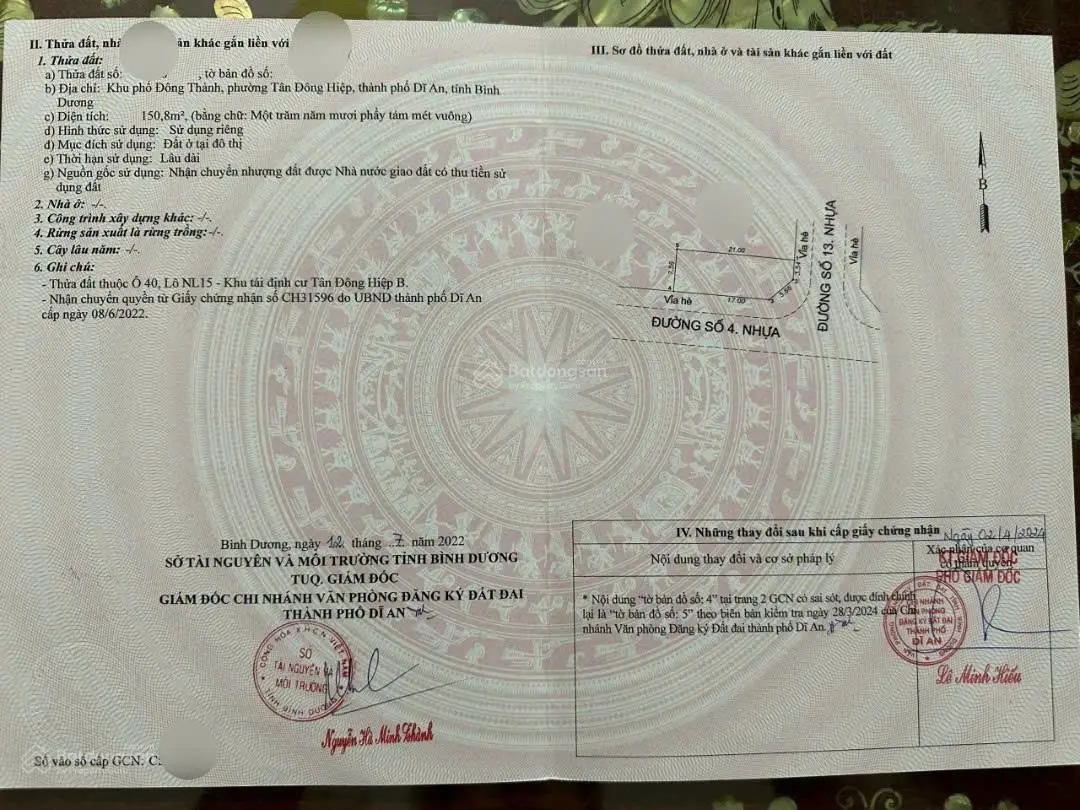 II. Thửa đất, nhà ản khác gắn liền với
1. Thửa đất:
a) Thửa đất số: , tờ bản đồ số:
b) Địa chỉ: Khu phố Đông Thành, phường Tân Đông Hiệp, thành phố Dĩ An, tỉnh Bình
Dương
c) Diện tích: 150,8m², (bằng chữ: Một trăm năm mươi phẩy tám mét vuông)
d) Hình thức sử dụng: Sử dụng riêng
đ) Mục đích sử dụng: Đất ở tại đô thị
e) Thời hạn sử dụng: Lâu dài
g) Nguồn gốc sử dụng: Nhận chuyển nhượng đất được Nhà nước giao đất có thu tiền sử
dụng đất
2. Nhà ở: -/-.
3. Công trình xây dựng khác: -/-.
4. Rừng sản xuất là rừng trồng: -/-.
5. Cây lâu năm: -/-.
6. Ghi chú:
- Thửa đất thuộc Ô 40, Lô NL15 - Khu tái định cư Tân Đông Hiệp B.
- Nhận chuyển quyền từ Giấy chứng nhận số CH31596 do UBND thành phố Dĩ An
cấp ngày 08/6/2022.
Bình Dương, ngày 12 tháng 7 năm 2022
SỞ TÀI NGUYÊN VÀ MÔI TRƯỜNG TỈNH BÌNH DƯƠNG
TUQ. GIÁM ĐỐC
GIÁM ĐỐC CHI NHÁNH VĂN PHÒNG ĐĂNG KÝ ĐẤT ĐAI
THÀNH PHỐ DĨ AN
CỘNG HÒA X.H.C.N VIỆT NAM
SỞ
TÀI NGUYÊN VÀ
MÔI TRƯỜNG
TỈNH BÌNH DƯƠNG
Nguyễn Hà Minh Thành
Số vào sổ cấp GCN: C
III. Sơ đồ thửa đất, nhà ở và tài sản khác gắn liền với đất
B
21.00
7.50
3.54
5.66
17.00
Vỉa hè
Vỉa hè
Vỉa hè
ĐƯỜNG SỐ 13. NHỰA
ĐƯỜNG SỐ 4. NHỰA
Batdongsan
by PropertyGuru
IV. Những thay đổi sau khi cấp giấy chứng nhận
Nội dung thay đổi và cơ sở pháp lý
Ngày 02/4/2024
Xác nhận của cơ quan
có thẩm quyền
KT.GIÁM ĐỐC
PHÓ GIÁM ĐỐC
* Nội dung "tờ bản đồ số: 4" tại trang 2 GCN có sai sót, được đính chính
lại là "tờ bản đồ số: 5" theo biên bản kiểm tra ngày 28/3/2024 của Chi
nhánh Văn phòng Đăng ký Đất đai thành phố Dĩ An.
CHI NHÁNH
VĂN PHÒNG
ĐĂNG KÝ ĐẤT ĐAI
THÀNH PHỐ
DĨ AN
Lê Minh Hiếu
Batdongsan